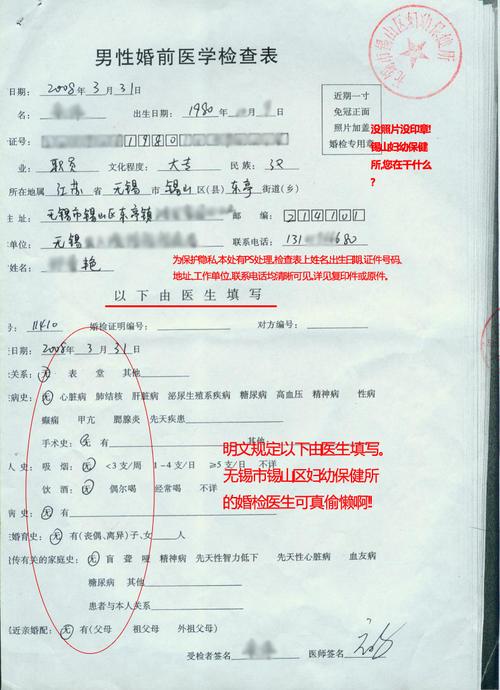 无锡市锡山区妇幼保健所
男性婚前医学检查表
日期: 2008 年 3 月 31 日
近期一寸
免冠正面
照片加盖
婚检专用章
没照片没印章!
锡山妇幼保健
所,您在干什么
?
名: 出生日期: 1980
证号: 1980
业: 职员 文化程度: 大专 民族: 汉
所在地属 江苏 省 无锡 市 锡山 区(县) 东亭 街道(乡)
址: 无锡市锡山区东亭镇 邮 编: 214101
单位: 无锡 联系电话: 131 680
姓名: 艳
为保护隐私,本处有PS处理,检查表上姓名,出生日期,证件号码,
地址,工作单位,联系电话均清晰可见,详见复印件或原件。
以下由医生填写
号: 11410 婚检证明编号: 对方编号:
日期: 2008 年 3 月 31 日
关系: 无 表 堂 其他
病史: 无 心脏病 肺结核 肝脏病 泌尿生殖系疾病 糖尿病 高血压 精神病 性病
癫痫 甲亢 腮腺炎 先天疾患
手术史: 无 有 其他
明文规定以下由医生填写。
无锡市锡山区妇幼保健所
的婚检医生可真偷懒啊!!
人史: 吸烟: 无 <3支/周 1-4支/日 ≥5支/日 不详
饮酒: 无 偶尔喝 经常喝 不详
病史: 无 有
婚育史: 无 有(丧偶、离异)子、女 人
传有关的家庭史: 无 盲 聋 哑 精神病 先天性智力低下 先天性心脏病 血友病
糖尿病 其他
患者与本人关系
近亲婚配: 无 有(父母 祖父母 外祖父母)
受检者签名 医师签名